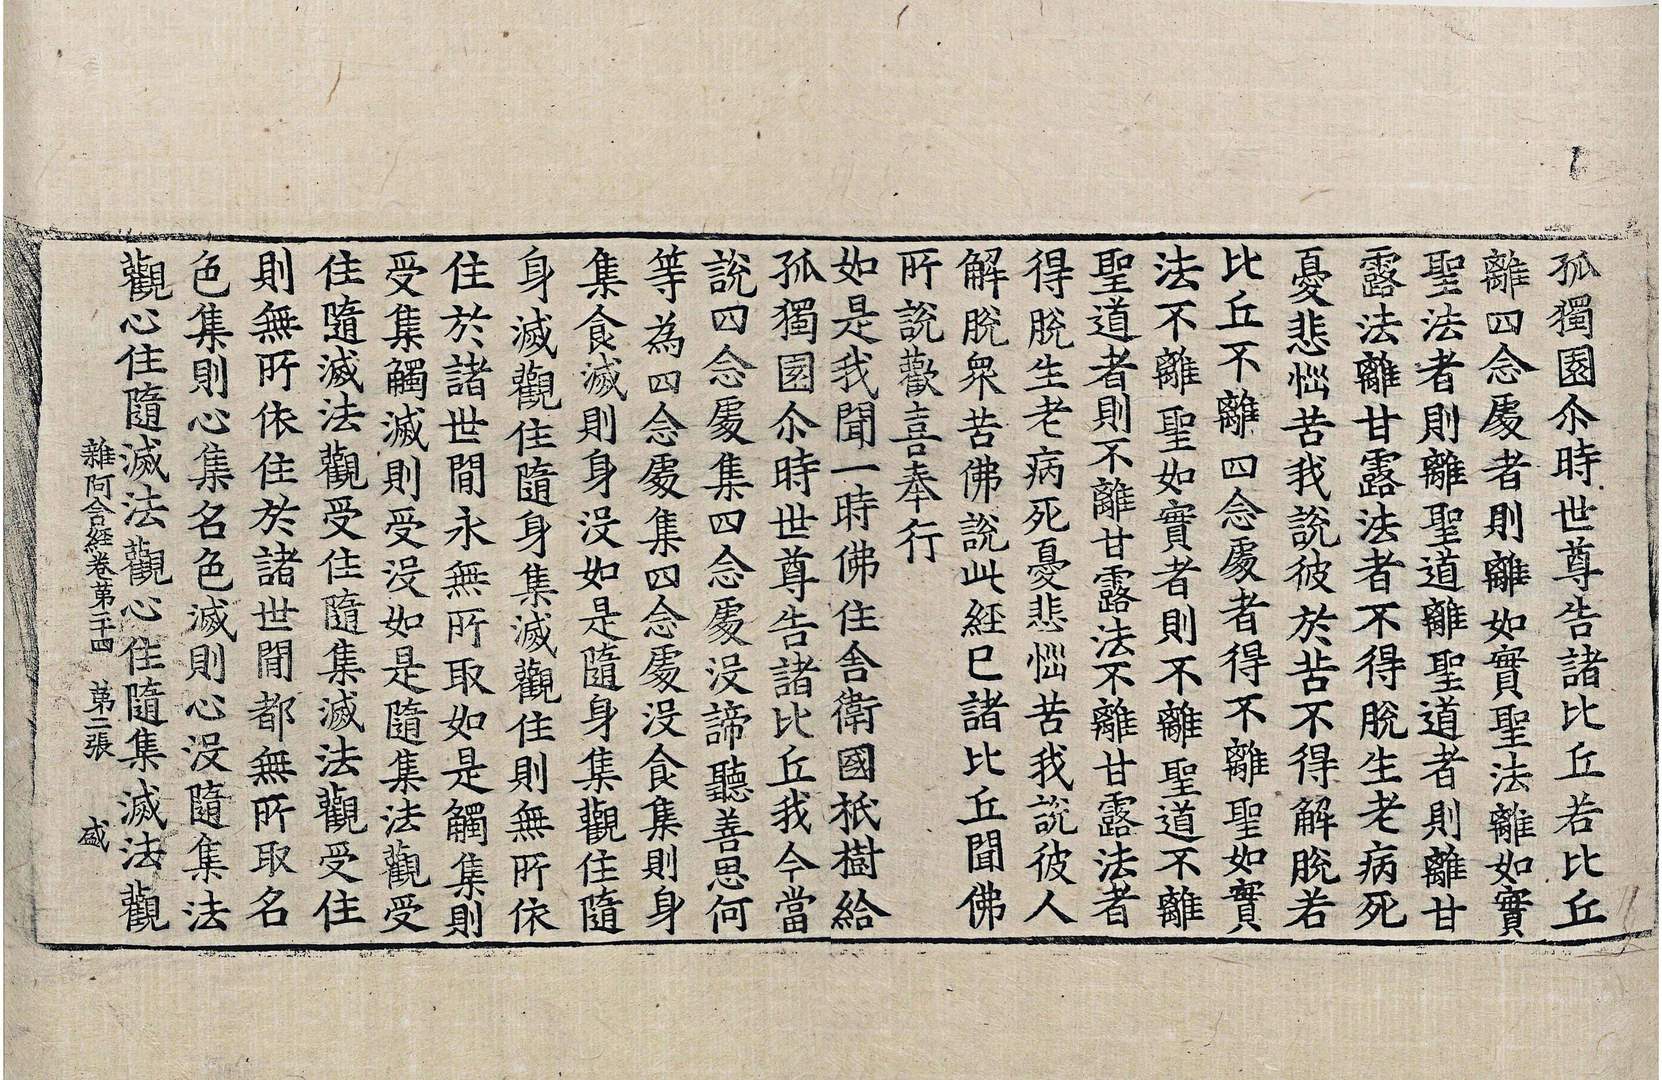 孤獨園尒時世尊告諸比丘若比丘
離四念處者則離如實聖法離如實
聖法者則離聖道離聖道者則離甘
露法離甘露法者不得脫生老病死
憂悲惱苦我說彼於苦不得解脫若
比丘不離四念處者得不離聖如實
法不離聖如實者則不離聖道不離
聖道者則不離甘露法不離甘露法者
得脫生老病死憂悲惱苦我說彼人
解脫衆苦佛說此經已諸比丘聞佛
所說歡喜奉行
如是我聞一時佛住舍衛國祇樹給
孤獨園尒時世尊告諸比丘我今當
說四念處集四念處沒諦聽善思何
等為四念處集四念處沒食集則身
集食滅則身沒如是隨身集觀住隨
身滅觀住隨身集滅觀住則無所依
住於諸世間永無所取如是觸集則
受集觸滅則受沒如是隨集法觀受
住隨滅法觀受住隨集滅法觀受住
則無所依住於諸世間都無所取名
色集則心集名色滅則心沒隨集法
觀心住隨滅法觀心住隨集滅法觀
雜阿含經卷第二十四 第二張 盛